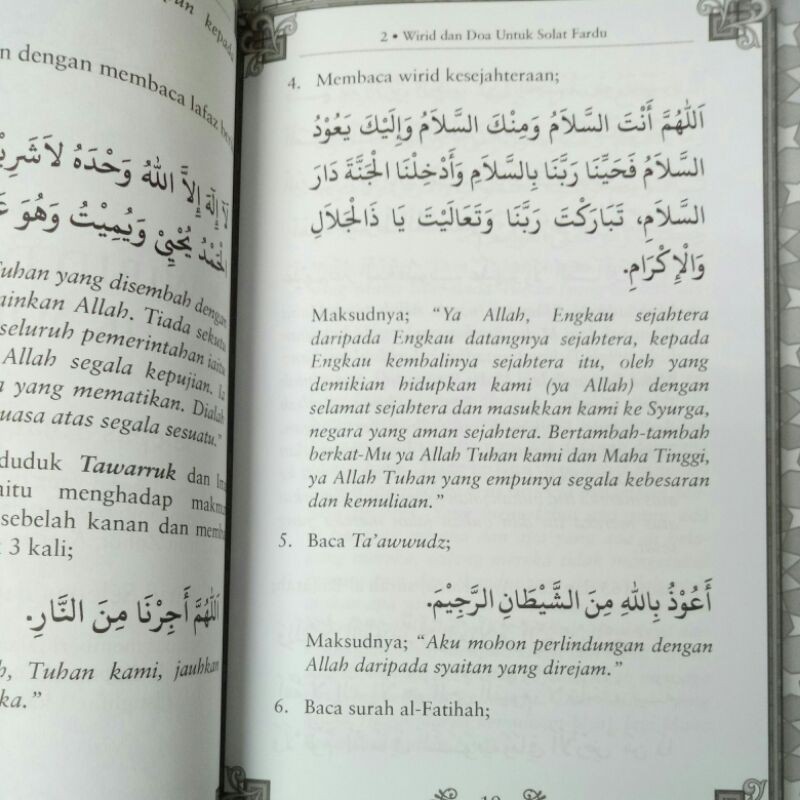 kepada
n dengan membaca lafaz
لَا إِلٰهَ إِلَّا اللهُ وَحْدَهُ لَا
الْحَمْدُ يُحْيِيْ وَيُمِيْتُ وَهُوَ
Tuhan yang disembah dengan
ainkan Allah. Tiada sekutu
seluruh pemerintahan iaitu
Allah segala kepujian. Ia
yang mematikan. Dialah
uasa atas segala sesuatu."
duduk Tawarruk dan
aitu menghadap
sebelah kanan dan
3 kali;
اَللّٰهُمَّ أَجِرْنَا مِنَ النَّارِ.
h, Tuhan kami, jauhkan
ka."
2 • Wirid dan Doa Untuk Solat Fardu
4. Membaca wirid kesejahteraan;
اَللّٰهُمَّ أَنْتَ السَّلَامُ وَمِنْكَ السَّلَامُ وَإِلَيْكَ يَعُوْدُ
السَّلَامُ فَحَيِّنَا رَبَّنَا بِالسَّلَامِ وَأَدْخِلْنَا الْجَنَّةَ دَارَ
السَّلَامِ، تَبَارَكْتَ رَبَّنَا وَتَعَالَيْتَ يَا ذَالْجَلَالِ
وَالْإِكْرَامِ.
Maksudnya; "Ya Allah, Engkau sejahtera
daripada Engkau datangnya sejahtera, kepada
Engkau kembalinya sejahtera itu, oleh yang
demikian hidupkan kami (ya Allah) dengan
selamat sejahtera dan masukkan kami ke Syurga,
negara yang aman sejahtera. Bertambah-tambah
berkat-Mu ya Allah Tuhan kami dan Maha Tinggi,
ya Allah Tuhan yang empunya segala kebesaran
dan kemuliaan."
5. Baca Ta'awwudz;
أَعُوْذُ بِاللهِ مِنَ الشَّيْطَانِ الرَّجِيْمَ.
Maksudnya; "Aku mohon perlindungan dengan
Allah daripada syaitan yang direjam."
6. Baca surah al-Fatihah;